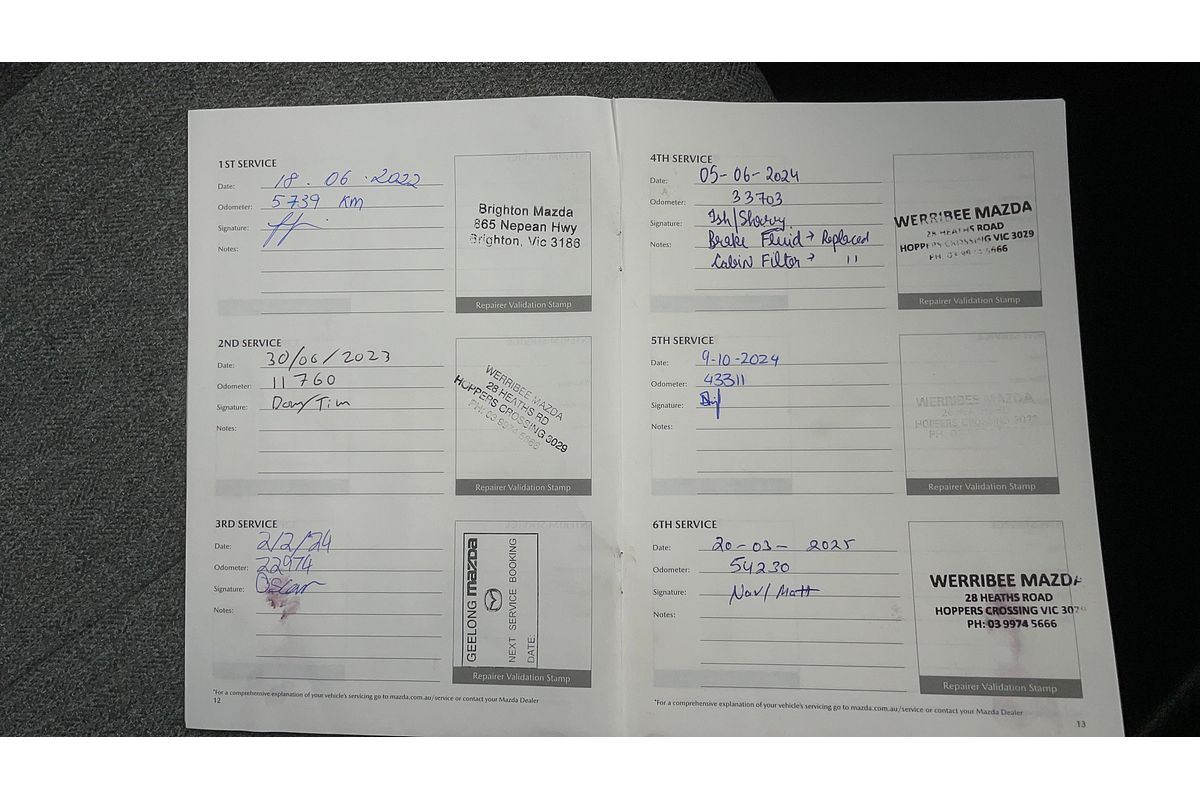 1ST SERVICE
Date: 18 . 06 . 2022
Odometer: 5739 KM
Signature:
Notes:
Brighton Mazda
865 Nepean Hwy
Brighton, Vic 3186
Repairer Validation Stamp
2ND SERVICE
Date: 30/06/2023
Odometer: 11760
Signature: Dom/Tim
Notes:
WERRIBEE MAZDA
28 HEATHS RD
HOPPERS CROSSING 3029
PH: 03 9974 5666
Repairer Validation Stamp
3RD SERVICE
Date: 2/2/24
Odometer: 22974
Signature: Oscar
Notes:
GEELONG mazda
NEXT SERVICE BOOKING
DATE:
Repairer Validation Stamp
*For a comprehensive explanation of your vehicle's servicing go to mazda.com.au/service or contact your Mazda Dealer
12
4TH SERVICE
Date: 05-06-2024
Odometer: 33703
Signature: Ish/
Notes: Brake Fluid → Replaced
Cabin Filter → 11
WERRIBEE MAZDA
28 HEATHS ROAD
HOPPERS CROSSING VIC 3029
PH: 03 9974 5666
Repairer Validation Stamp
5TH SERVICE
Date: 9-10-2024
Odometer: 43311
Signature:
Notes:
WERRIBEE MAZDA
28 HEATHS ROAD
HOPPERS CROSSING VIC 3029
PH:
Repairer Validation Stamp
6TH SERVICE
Date: 20-03- 2025
Odometer: 54230
Signature: Nav/Matt
Notes:
WERRIBEE MAZDA
28 HEATHS ROAD
HOPPERS CROSSING VIC 3029
PH: 03 9974 5666
Repairer Validation Stamp
*For a comprehensive explanation of your vehicle's servicing go to mazda.com.au/service or contact your Mazda Dealer
13